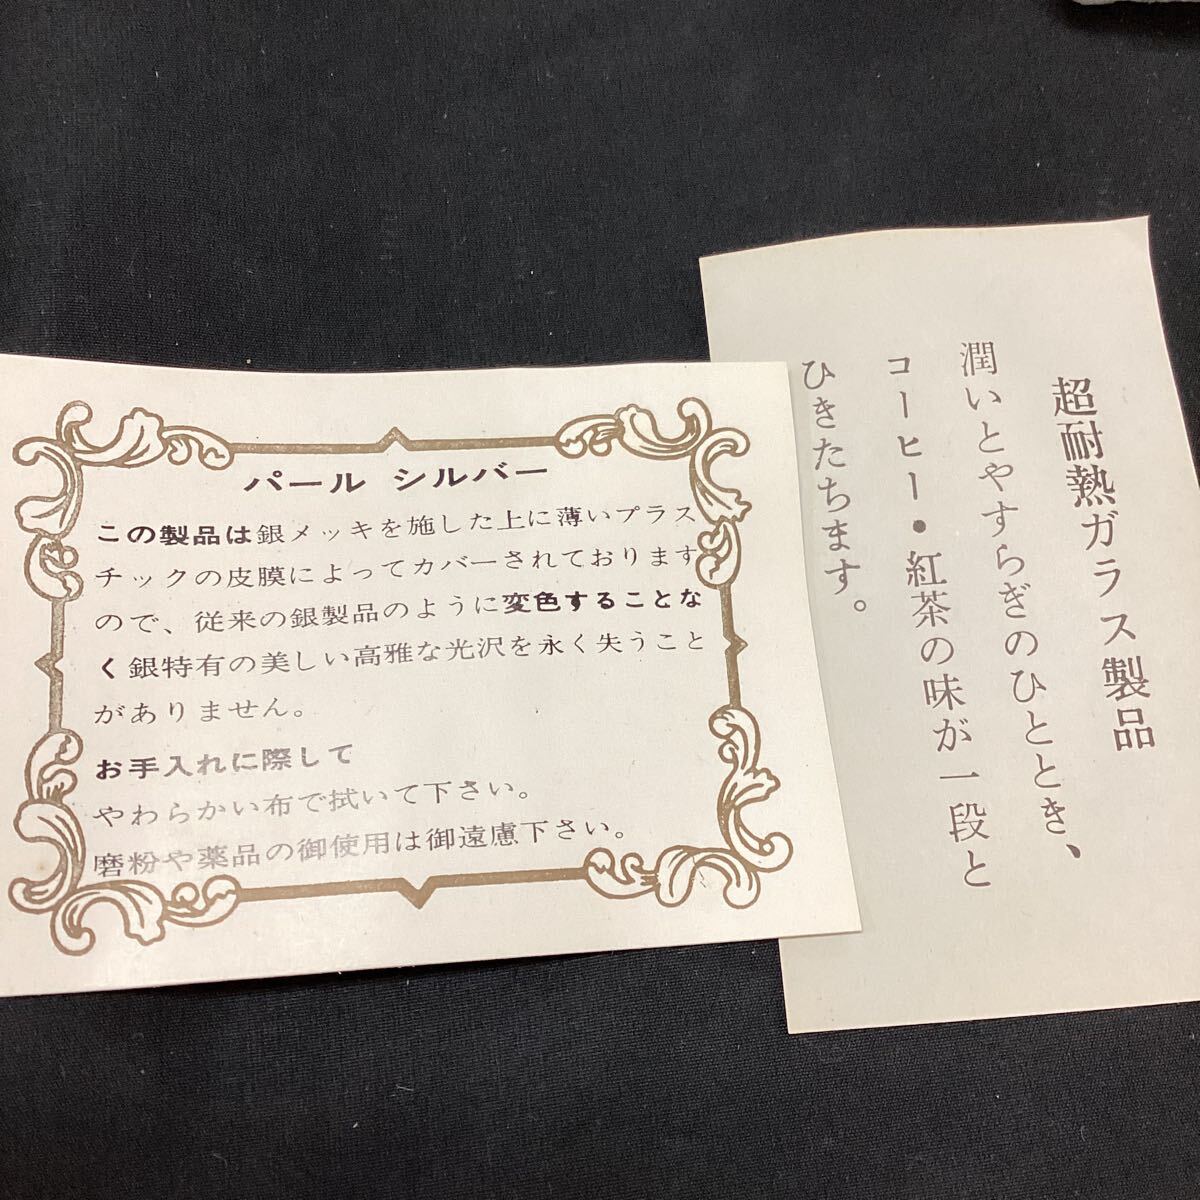 パール シルバー
この製品は銀メッキを施した上に薄いプラス
チックの皮膜によってカバーされております
ので、従来の銀製品のように変色することな
く銀特有の美しい高雅な光沢を永く失うこと
がありません。
お手入れに際して
やわらかい布で拭いて下さい。
磨粉や薬品の御使用は御遠慮下さい。
超耐熱ガラス製品
潤いとやすらぎのひととき、
コーヒー・紅茶の味が一段と
ひきたちます。